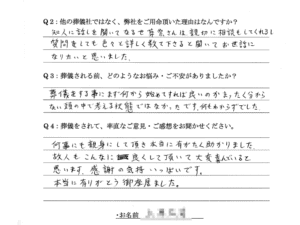 Q2：他の葬儀社ではなく、弊社をご用命頂いた理由はなんですか？
知人に話しを聞いてなるせ葬祭さんは親切に相談もしてくれるし
質問をしても色々と詳しく教て下さると聞いてお世話に
なりたいと思いました。
Q3：葬儀される前、どのようなお悩み・ご不安がありましたか？
葬儀をする事にまず何から始めてすれば良いのかまったく分から
ない頭の中で考える状態ではなかったです。何もわからずでした。
Q4：葬儀をされて、率直なご意見・ご感想をお聞かせください。
何事にも親身にして頂き本当に有がたく助かりました。
故人もこんなに良くして頂いて大変喜んでいると
思います。感謝の気持いっぱいです。
本当に有りがとう御座居ました。
・お名前